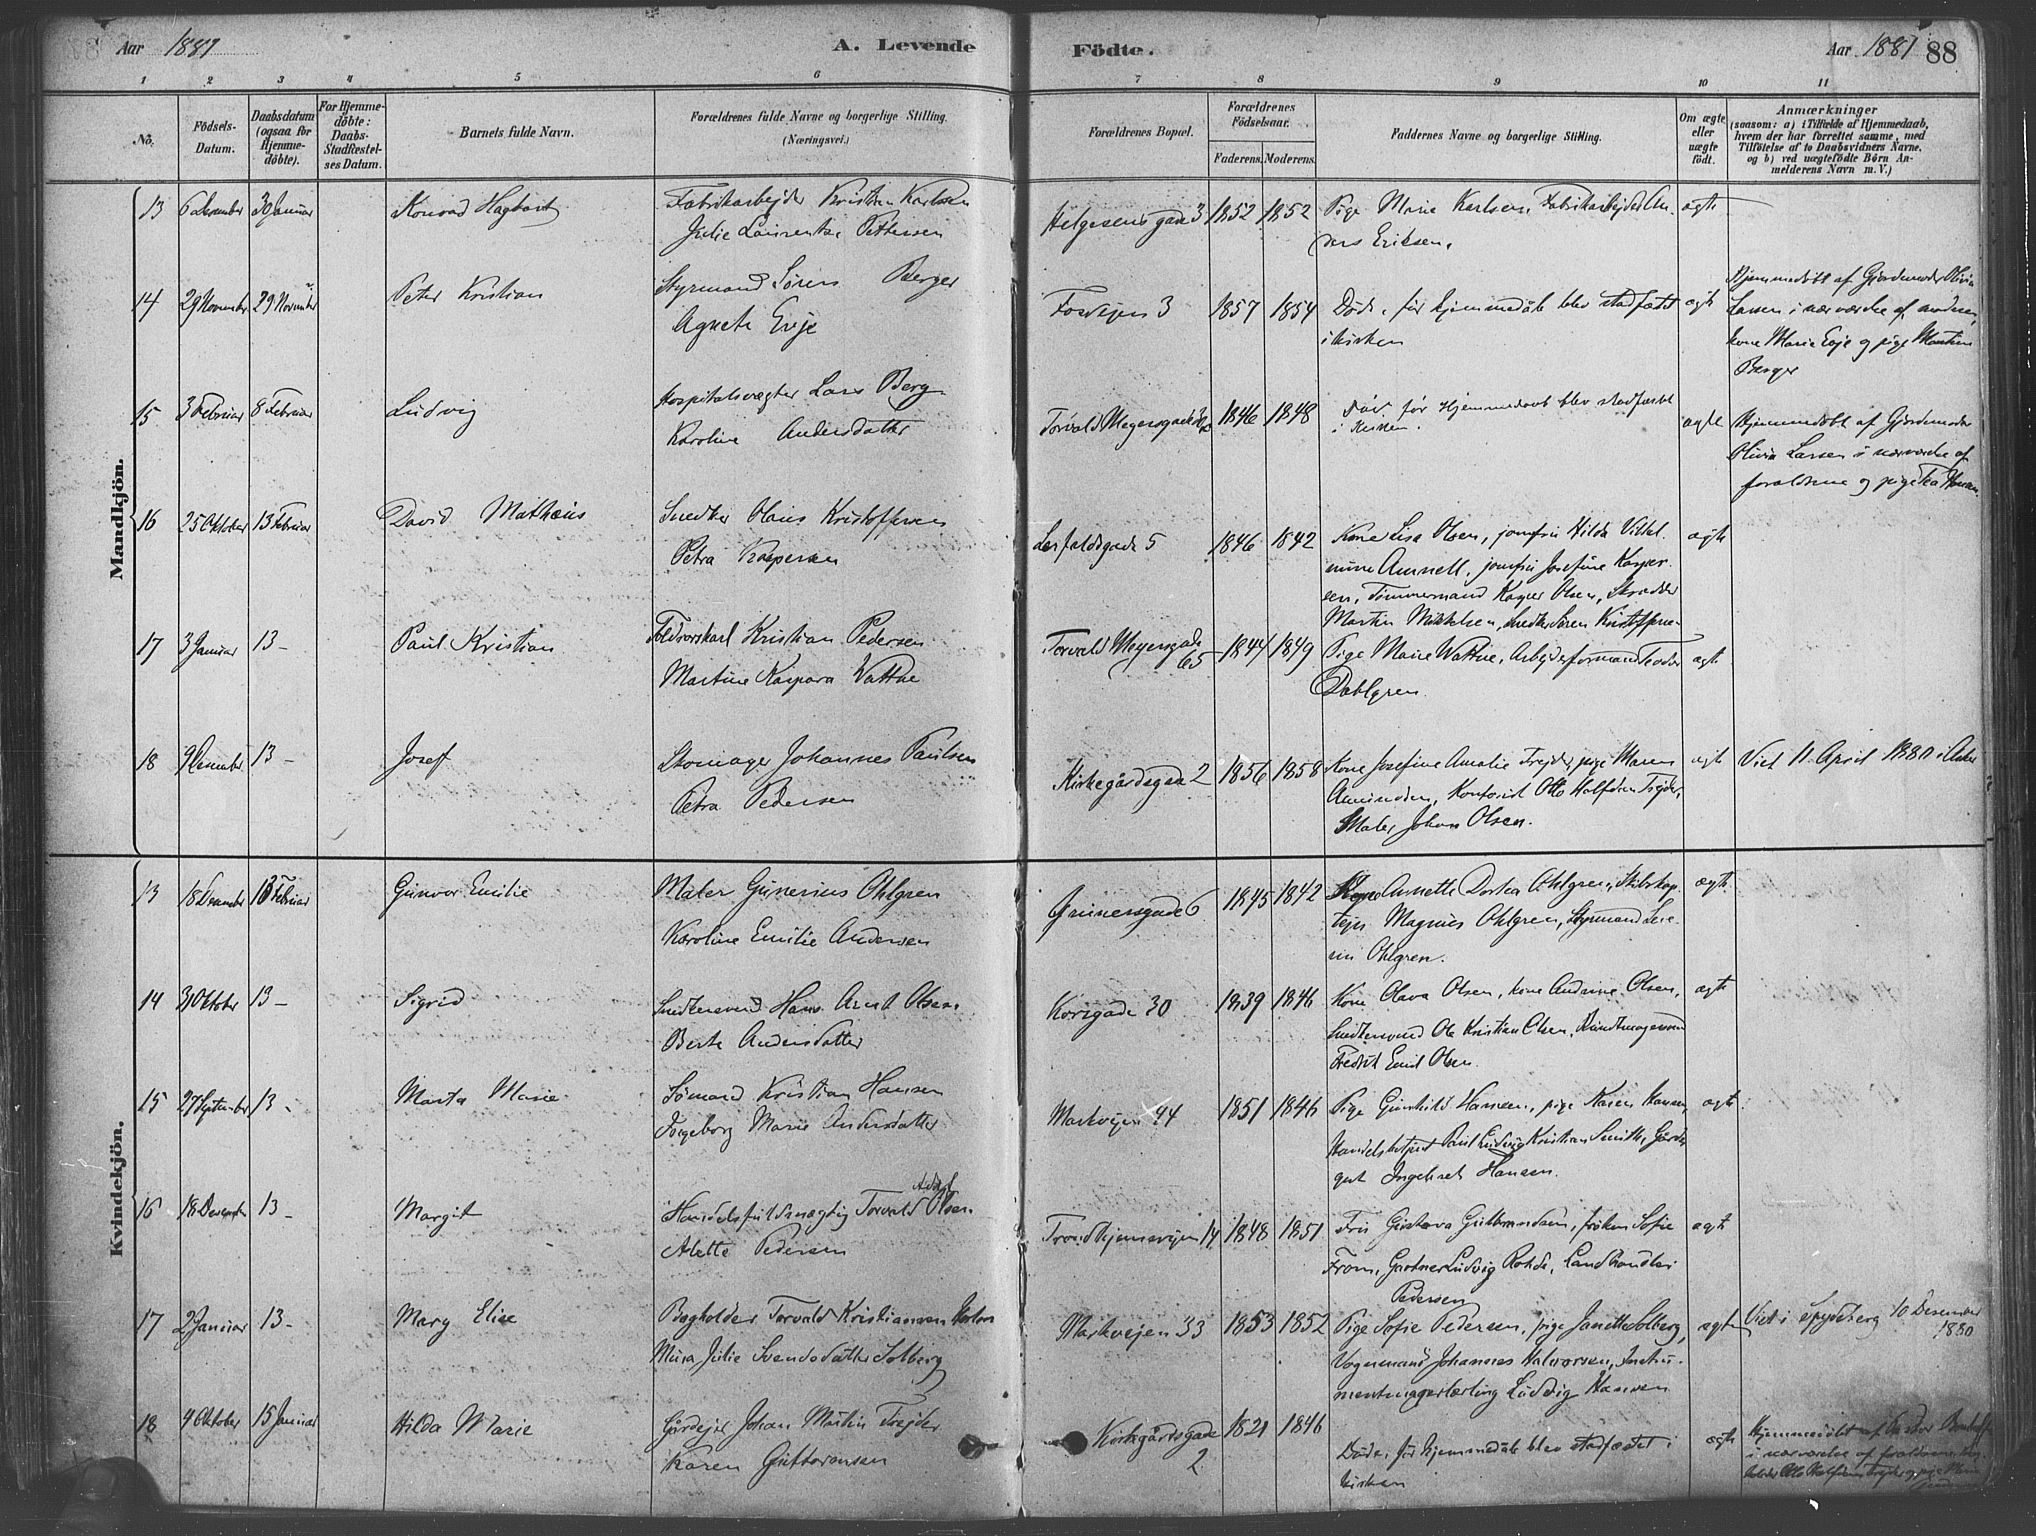 Aar 1881
A. Levende Födte.
Aar 1881 88
1 2 3 4 5 6 7 8 9 10 11
No.
Födsels-Datum.
Daabsdatum (ogsaa for Hjemme-döbte).
For Hjemme-döbte: Daabs-Stadfæstel-ses Datum.
Barnets fulde Navn.
Forældrenes fulde Navne og borgerlige Stilling.
(Næringsvei.)
Forældrenes Bopæl.
Forældrenes Födselsaar.
Faderens. Moderens.
Faddernes Navne og borgerlige Stilling.
Om ægte eller uægte födt.
Anmærkninger
(saasom: a) i Tilfælde af Hjemmedaab,
hvem der har forrettet samme, med
Tilföielse af to Daabsvidners Navne,
og b) ved uægtefödte Börn An-
melderens Navn m. V.)
Mandkjön.
13 6 December 30 Januar Konrad Hagbart Fabrikarbejder Kristian Karlsen
Julie Laurentze Pettersen
Helgesensgade 3 1852 1852 Pige Marie Karlsen, Fabrikarbejder An-
ders Eriksen. ægte
14 29 November 29 November Peter Kristian Styrmand Sören Berger
Agnete Evje
Fossvejen 3 1857 1854 Døde, før hjemmedåb blev stadfæstet
i kirken ægte
Hjemmedöbt af Gjordemoder Olivia
Larsen i nærværelse af moderen,
kone Marie Evje og pige Martine
Berger
15 3 Februar 8 Februar Ludvig Hospitalsvægter Lars Berg
Karoline Andersdatter
Torvald Meyersgade 1846 1848 Död før Hjemmedaab blev stadfæstet
i Kirken. ægte
Hjemmedöbt af Gjordemoder
Olivia Larsen i nærværelse af
forældrene og pige
16 25 Oktober 13 Februar David Mathæus Snedker Hans Kristoffersen
Petra Kaspersen
Lerfaldsgade 5 1846 1842 Kone Lisa Olsen, jomfru Hilda Vilhel-
mine Amnell, jomfru Josefine Kasper-
sen, Tömmermand Kasper Olsen, Skrædder
Martin Mikkelsen, snedker Sören Kristoffersen ægte
17 3 Januar 13 - Paul Kristian Kristian Pedersen
Martine Kaspara Watthne
Torvald Meyersgade
65 1844 1849 Pige Marie Watthne, Arbejdsformand Teodor
Dahlgren. ægte
18 9 December 13 - Josef Skomager Johannes Paulsen
Petra Pedersen
Kirkegårdsgade 2 1856 1858 Kone Josefine Amalie Trejder, pige Maren
Amundsen, Kontorist Otto Halfdan Trejder,
Maler Johan Olsen. ægte
Viet 11 April 1880 i Asker
Kvindekjön.
13 18 December 13 Februar Gunvor Emilie Maler Gunerius Ohlgren
Karoline Emilie Andersen
Grünersgade 6 1845 1842 Kone Annette Dortea Ohlgren, Skibskap-
tejn Magnus Ohlgren, Styrmand
Ohlgren. ægte
14 31 Oktober 13 - Sigrid Snedkersvend Hans Arnt Olsen
Berte Andersdatter
Korsgade 30 1839 1846 Kone Olava Olsen, kone Andrine Olsen,
Snedkersvend Ole Kristian Olsen, Buntmagersvend
Fredrik Emil Olsen ægte
15 27 September 13 - Marta Marie Sömand Kristian Hansen
Ingeborg Marie Andersdatter
Markvejen 44 1851 1846 Pige Gunhild Hansen, pige Karen Hansen,
Handelsbetjent Paul Ludvig Kristian Smith, Gårds-
gut Ingebret Hansen. ægte
16 18 Desember 13 - Margit Handelsfuldmægtig Torvald Adolf Olsen
Alette Pedersen
Trondhjemsvejen 14 1848 1851 Fru Gustava Gulbrandsen, fröken Sofie
From, Gartner Ludvig Rohde, Landhandler
Pedersen ægte
17 2 Januar 13 - Mary Elise Bogholder Torvald Kristiansen
Mina Julie Svendsdatter Solberg
Markvejen 33 1853 1852 Pige Sofie Pedersen, pige Janette Solberg,
Vognmand Johannes Halvorsen, Instru-
mentmagerlærling Ludvig Hansen ægte
Viet i Spydeberg 10 Desember
1880
18 4 Oktober 15 Januar Hilda Marie Gårdejer Johan Martin Trejder
Karen Guttormsen
Kirkegårdsgade
2 1821 1846 Döde, før hjemmedåb blev stadfæstet i
kirken ægte
Hjemmedöbt af
i nærværelse af forældrene,
Otto Halfdan Trejder og pige